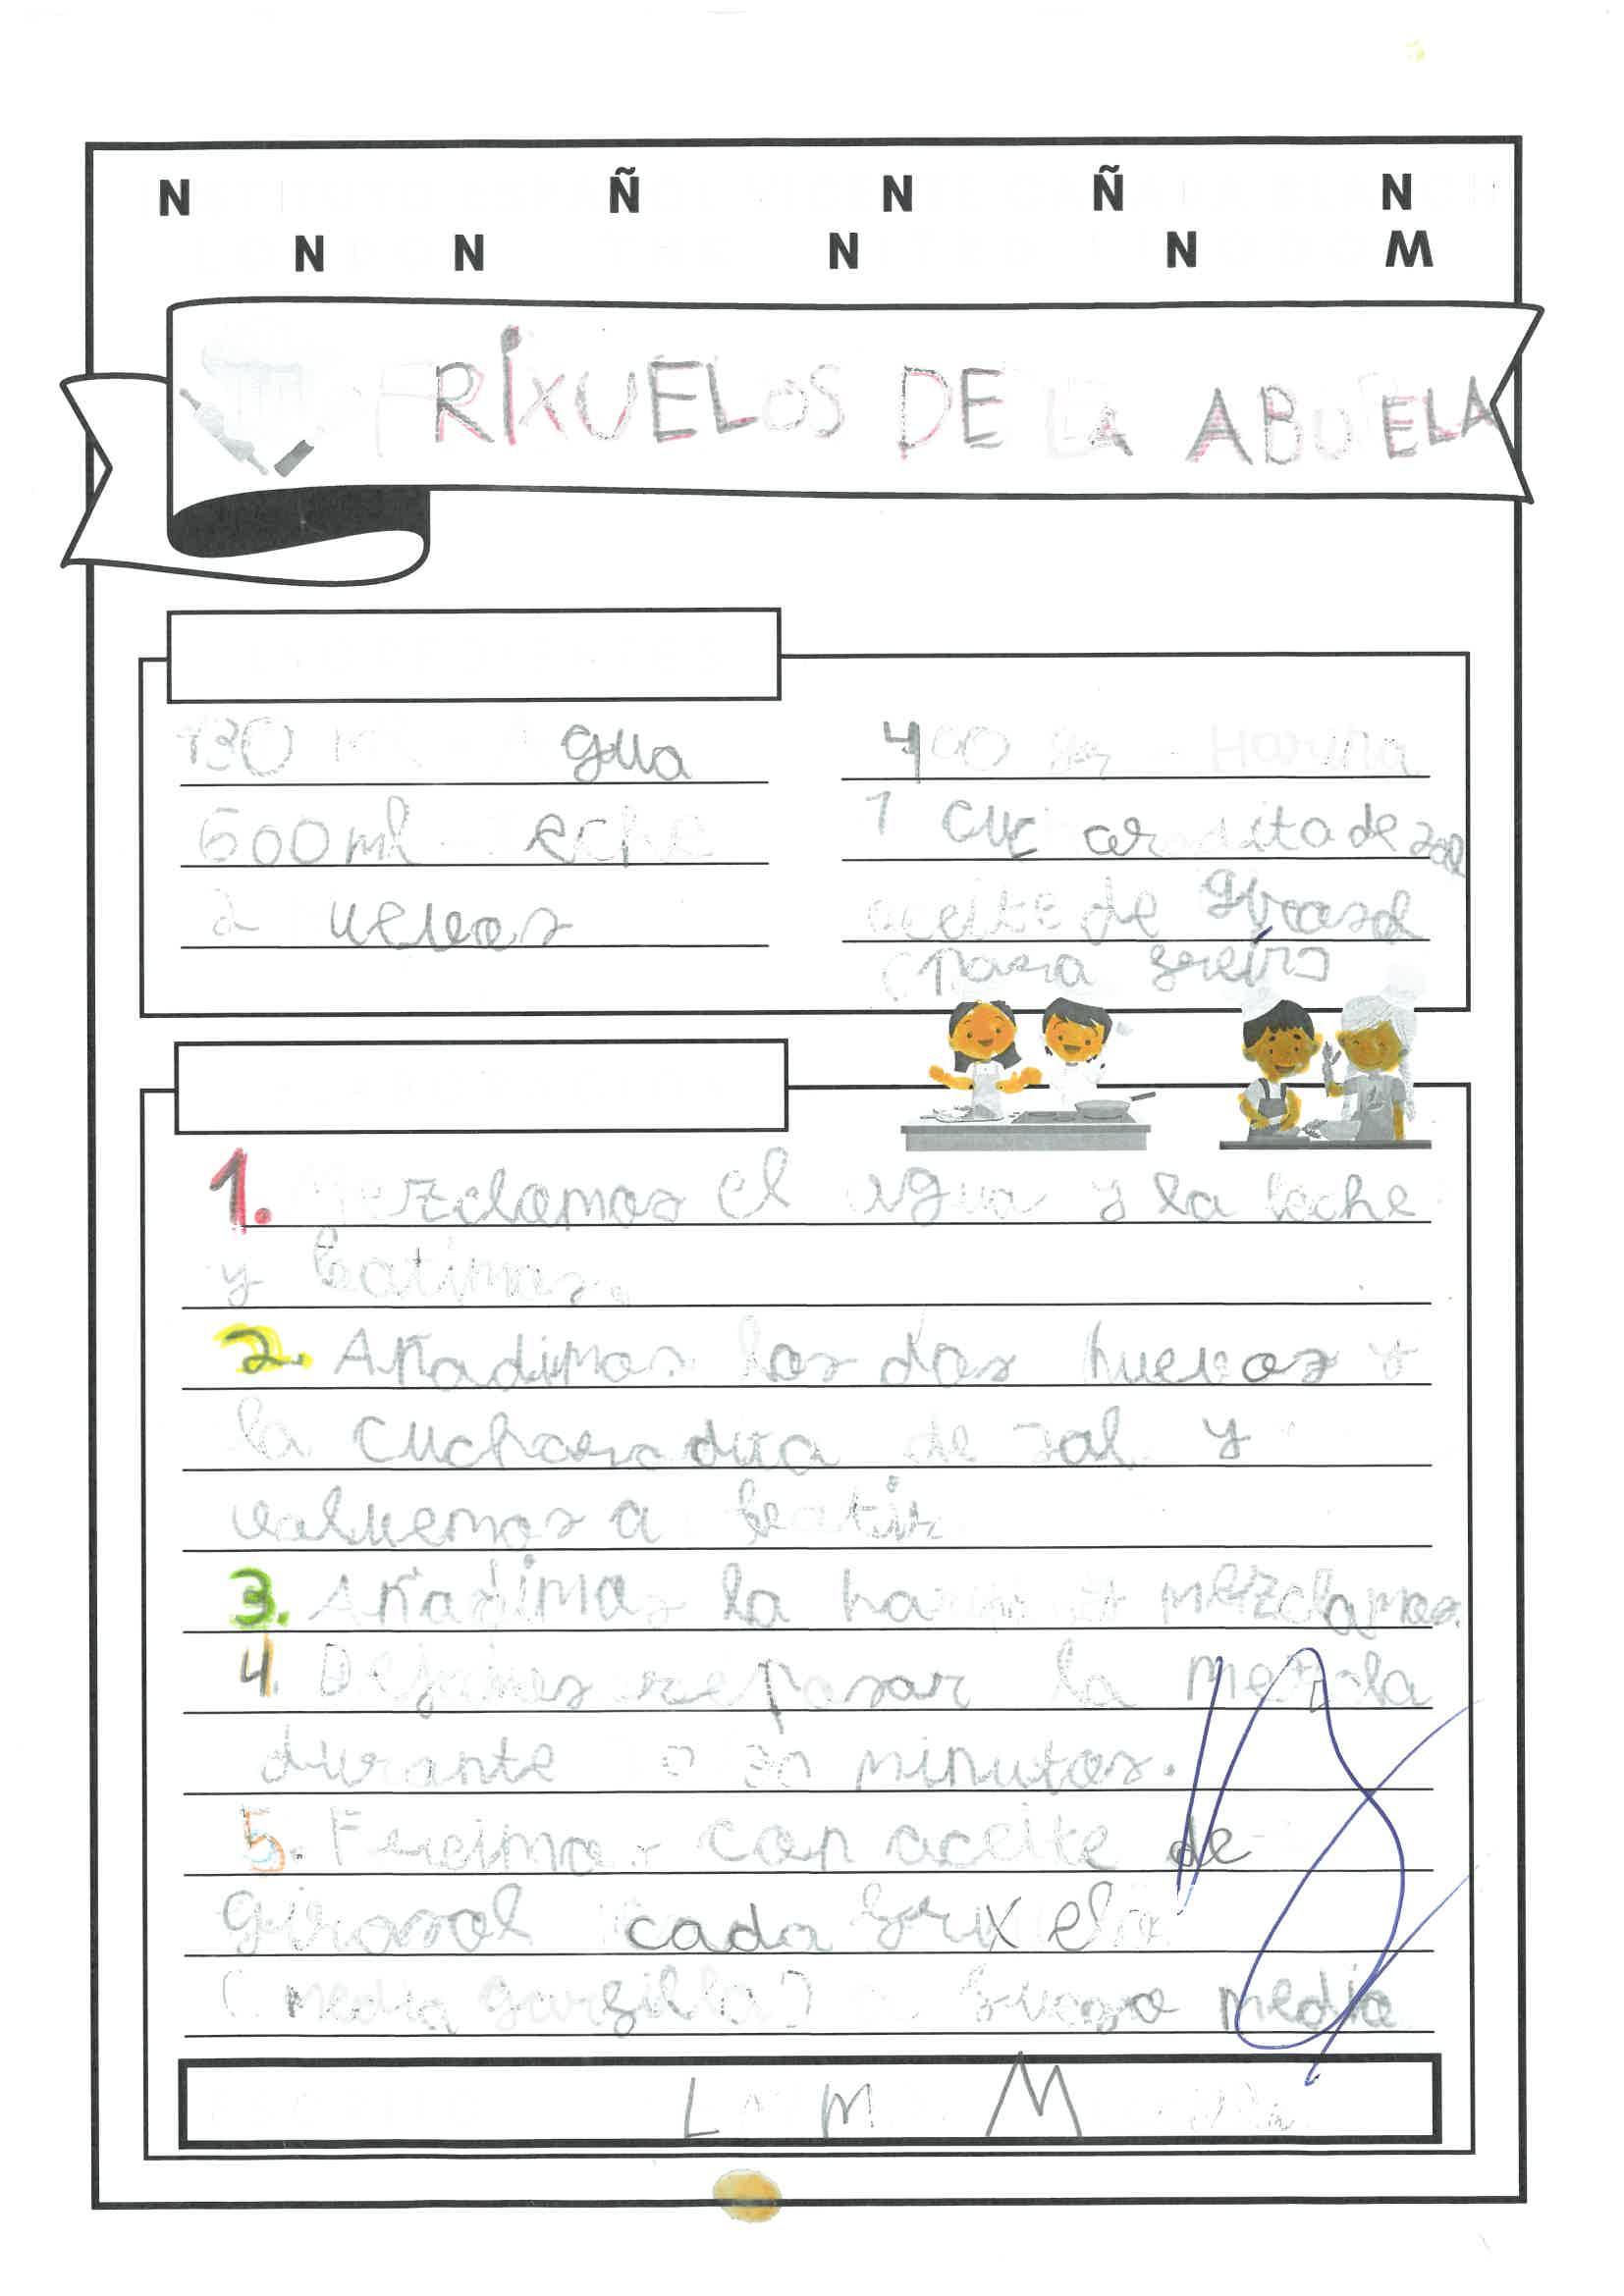 N Ñ N Ñ N
N N N N M
FRIXUELOS DE LA ABUELA
gua
400 gr Harina
600ml leche
1 cucharadita de
2 huevos
aceite de girasol
(para freír)
1. Mezclamos el agua y la leche
y batimos.
2. Añadimos los dos huevos y
la cucharadita de sal y
volvemos a batir
3. Añadimos la harina y mezclamos.
4. Dejamos reposar la mezcla
durante 30 minutos.
5. Freimos con aceite de
girasol cada frixuelo
(media garfilla) a fuego medio
L M M